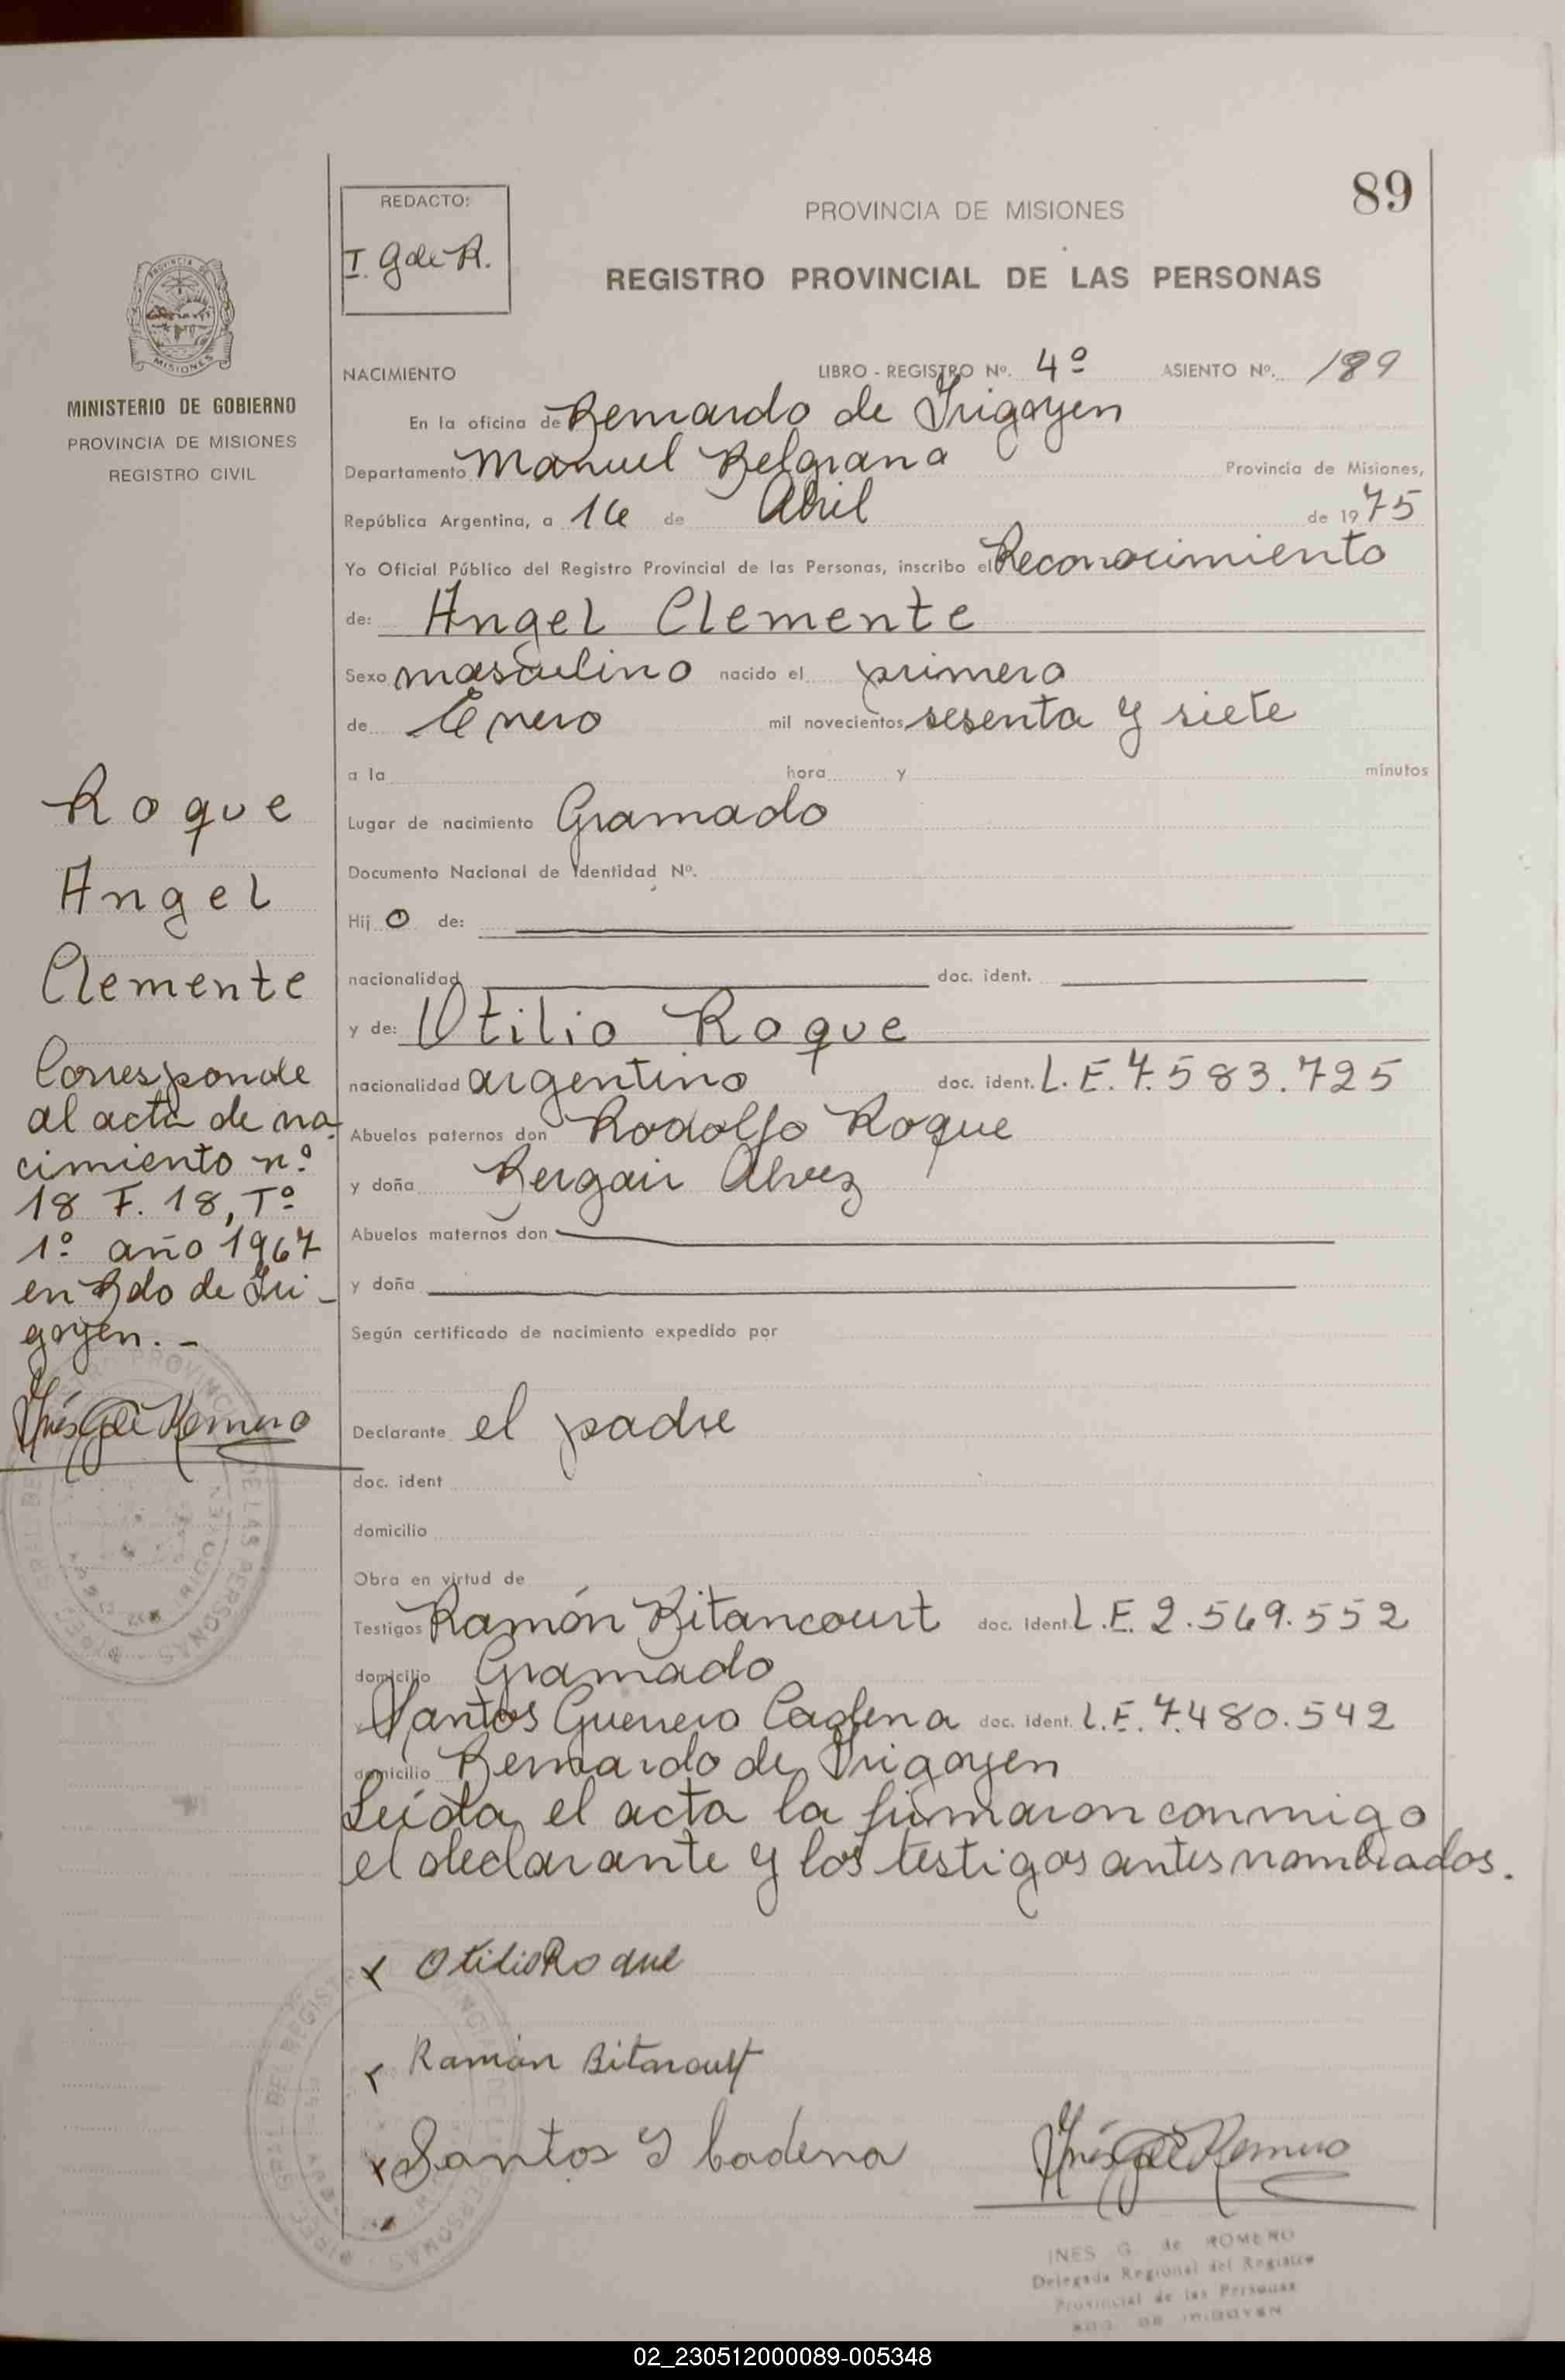 89
REDACTO:
I. G de R.
PROVINCIA DE MISIONES
REGISTRO PROVINCIAL DE LAS PERSONAS
PROVINCIA DE
MISIONES
MINISTERIO DE GOBIERNO
PROVINCIA DE MISIONES
REGISTRO CIVIL
NACIMIENTO LIBRO - REGISTRO Nº. 4º ASIENTO Nº. 189
En la oficina de Bernardo de Irigoyen
Departamento Manuel Belgrano Provincia de Misiones,
República Argentina, a 16 de Abril de 1975
Yo Oficial Público del Registro Provincial de las Personas, inscribo el Reconocimiento
de: Angel Clemente
Sexo masculino nacido el primero
de Enero mil novecientos sesenta y siete
a la hora y minutos
Lugar de nacimiento Gramado
Documento Nacional de Identidad Nº.
Hij o de:
nacionalidad doc. ident.
y de: Otilio Roque
nacionalidad argentino doc. ident. L.E. 7.583.725
Abuelos paternos don Rodolfo Roque
y doña Bergair Alvez
Abuelos maternos don
y doña
Según certificado de nacimiento expedido por
Declarante el padre
doc. ident
domicilio
Obra en virtud de
Testigos Ramón Bitancourt doc. ident. L.E. 2.569.552
domicilio Gramado
y Santos Guerrero Cadena doc. ident. L.E. 7.480.542
domicilio Bernardo de Irigoyen
Leída el acta la firmaron conmigo
el declarante y los testigos antes nombrados.
Roque
Angel
Clemente
Corresponde
al acta de na-
cimiento n.º
18 F. 18, Tº
1º año 1967
en Bdo de Iri-
goyen. -
Inés G de Romero
x Otilio Roque
x Ramón Bitancourt
x Santos G Cadena
Inés G de Romero
INES G. de ROMERO
Delegada Regional del Registro
Provincial de las Personas
BDO. DE IRIGOYEN
02_230512000089-005348